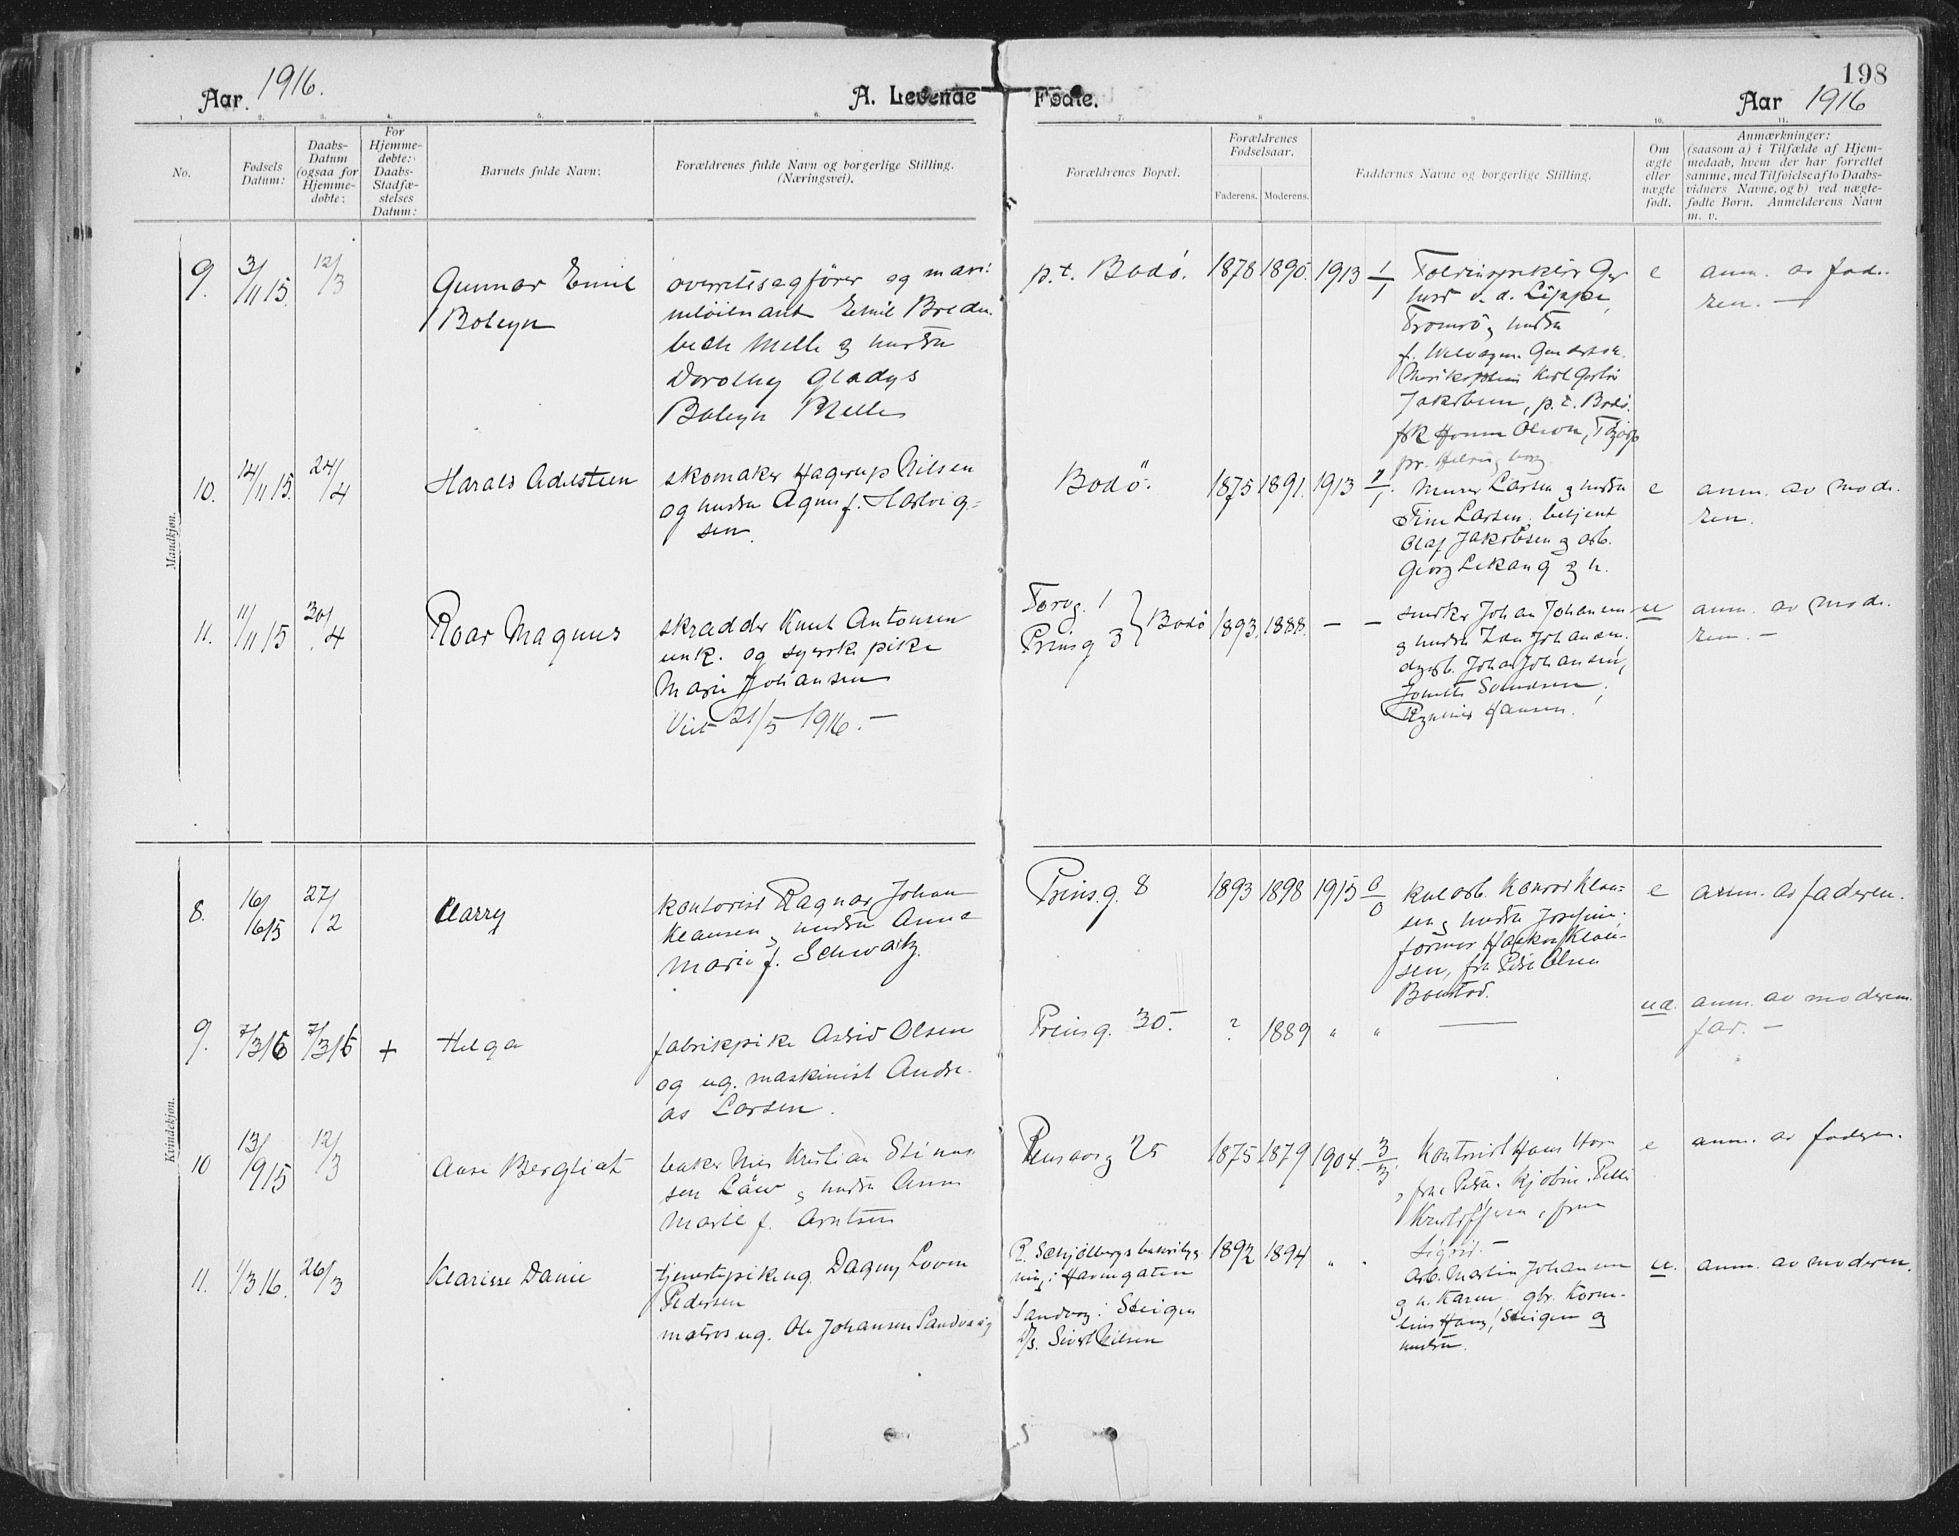 198
Aar. 1916.
A. Levende Fødte.
Aar 1916
1. 2. 3. 4. 5. 6. 7. 8 9. 10. 11.
No.
Fødsels Datum:
Daabs-Datum (ogsaa for Hjemme-døbte:
For Hjemme-døbte: Daabs-Stadfæ-stelses Datum:
Barnets fulde Navn:
Forældrenes fulde Navn og borgerlige Stilling.
(Næringsvei).
Forældrenes Bopæl.
Forældrenes Fødselsaar.
Faderens. Moderens.
Faddernes Navne og borgerlige Stilling.
Om ægte eller uægte født.
Anmærkninger:
(saasom a) i Tilfælde af Hjem-
medaab, hvem der har forrettet
samme, med Tilføielse af to Daabs-
vidners Navne, og b) ved uægte-
fødte Børn. Anmelderens Navn
m. v.
Mandkjøn.
9. 3/11 15. 12/3
Gunnar Emil
Boleyn
overretssagfører og mari:
neløitnant Emil Breden
bech Melle og hustru
Dorothy Gladys
Boleyn Melle
p.t. Bodø. 1878 1890. 1913 1/1
v. d. Lippe,
Tromsø og hustru
Jakobsen, p.t. Bodø.
Olsen,
e anm. av fade-
ren. —
10. 14/11 15. 24/4
Harald Adelsteen
skomaker Hagerup Nilsen
og hustru Agnes f. Hartvig-
sen.
Bodø. 1875 1891. 1913
Murer Larsen og hustru
Fine Larsen, betjent
Olaf Jakobsen og arb.
Georg Lekang og h.
e anm. av mode-
ren.
11. 11/11 15 30/4
Roar Magnus
skrædder Knut Antonsen
unk. og syerske pike
Marie Johansen
Viet 21/5 1916. —
Torvg. 1
Prinsg 3 } Bodø
1893. 1888. — —
snedker Johan Johansen
og hustru Johansen.
Johan Johansen,
Svendsen,
Hansen.
u anm. av mode-
ren. —
Kvindekjøn.
8. 16/ 27/2
Harry
kontorist Ragnar Johan
Klausen og hustru Anna
Marie f. Schwartz.
Prinsg. 8 1893 1898 1915 0/0
kularb. Konrad Klau-
sen og hustru Josefine.
former Haakon Klau-
sen, fru Olsen
e anm. av faderen.
9. 7/3 16 7/3 16 +
Helga
fabrikpike Astrid Olsen
og ug. maskinist Andre-
as Larsen.
Prinsg. 30. ? 1889 " " —
u anm. av moderen
far. —
10 13/9 15 12/3
Aase Bergliot
baker Nils Kristian Stinus
sen Løw og hustru Anna
Marie f. Arntsen
25 1875 1879 1904 3/3
Kontorist Hans
Sigrid. —
e anm. av faderen.
11. 1/3 16. 26/3
Klarisse Danie
tjenestepike ug. Dagny Loven
Pedersen
matros ug. Ole Johansen Sandvaag
P. Schjølbergs
ning i Havnegaten
Sandvaag i Steigen
D/s. Sivert Nilsen
1892 1894 " "
Arb. Martin Johansen
og h. Karen. gbr.
Hans, Steigen og
hustru.
u. anm. av moderen.